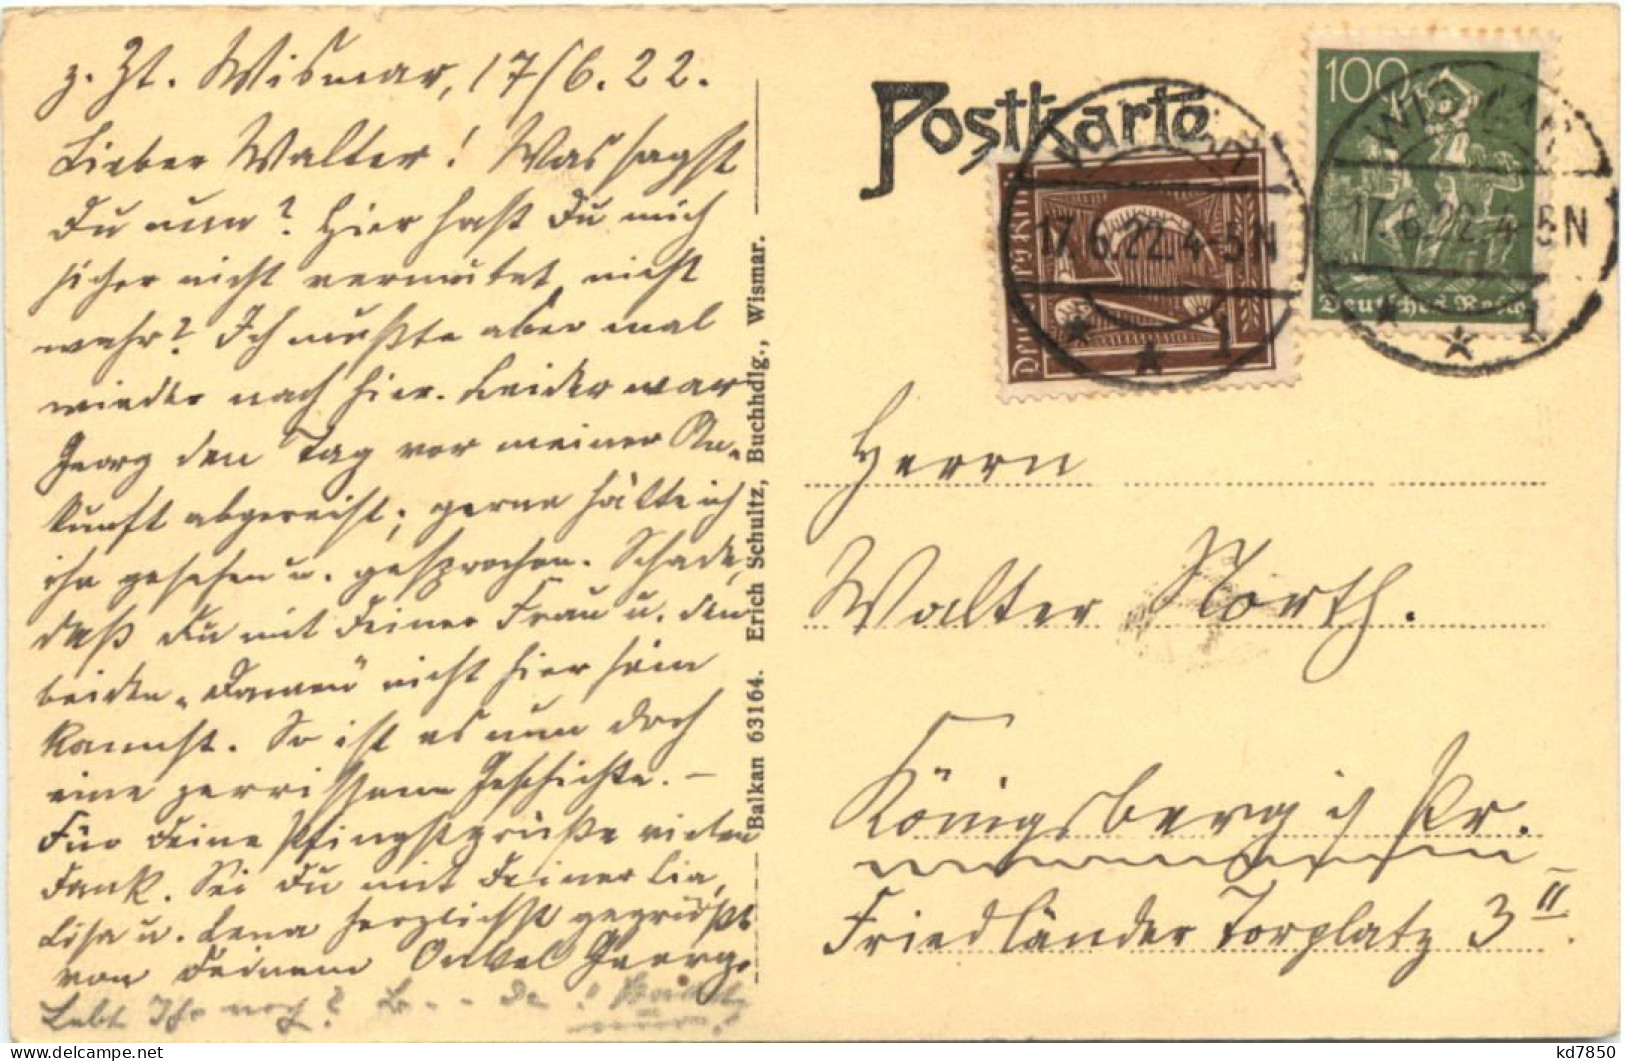 z. Zt. Wismar, 17/6. 22.
Lieber Walter! Was sagst
Du nun? Hier hast Du mich
sicher nicht vermutet, nicht
wahr? Ich mußte aber mal
wieder nach hier. Leider war
Georg den Tag vor meiner An-
kunft abgereist; gerne hätte ich
ihn gesehen u. gesprochen. Schade,
daß Du mit Deiner Frau u. den
beiden „Damen" nicht hier sein
kannst. So ist es nun doch
eine zerrissene Geschichte. –
Für Deine Pfingstgrüße vielen
Dank. Sei Du mit Deiner Lia,
Lisa u. Lena herzlichst gegrüßt
von Deinem Onkel Georg.
Lebt Ihr noch?
Balkan 63164. Erich Schultz, Buchhdlg., Wismar.
Postkarte
Deutsches Reich
17.6.22.4-5N
* * 1
100
WISMAR
17.6.22.4-5N
Deutsches Reich
* * 1
Herrn
Walter North.
Königsberg i/ Pr.
Friedländer Torplatz 3 II.
kd7850